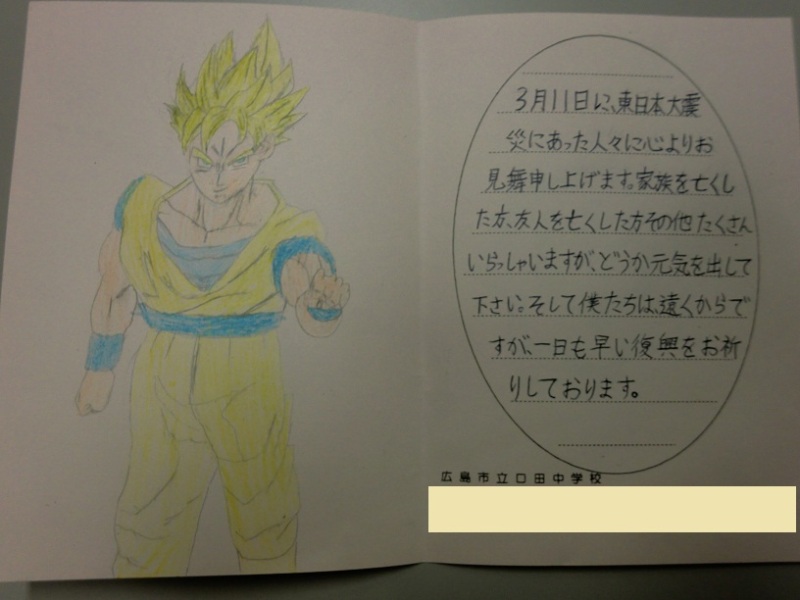 3月11日に、東日本大震
災にあった人々に心よりお
見舞申し上げます。家族を亡くし
た方、友人を亡くした方その他たくさん
いらっしゃいますが、どうか元気を出して
下さい。そして僕たちは、遠くからで
すが、一日も早い復興をお祈
りしております。
広島市立口田中学校